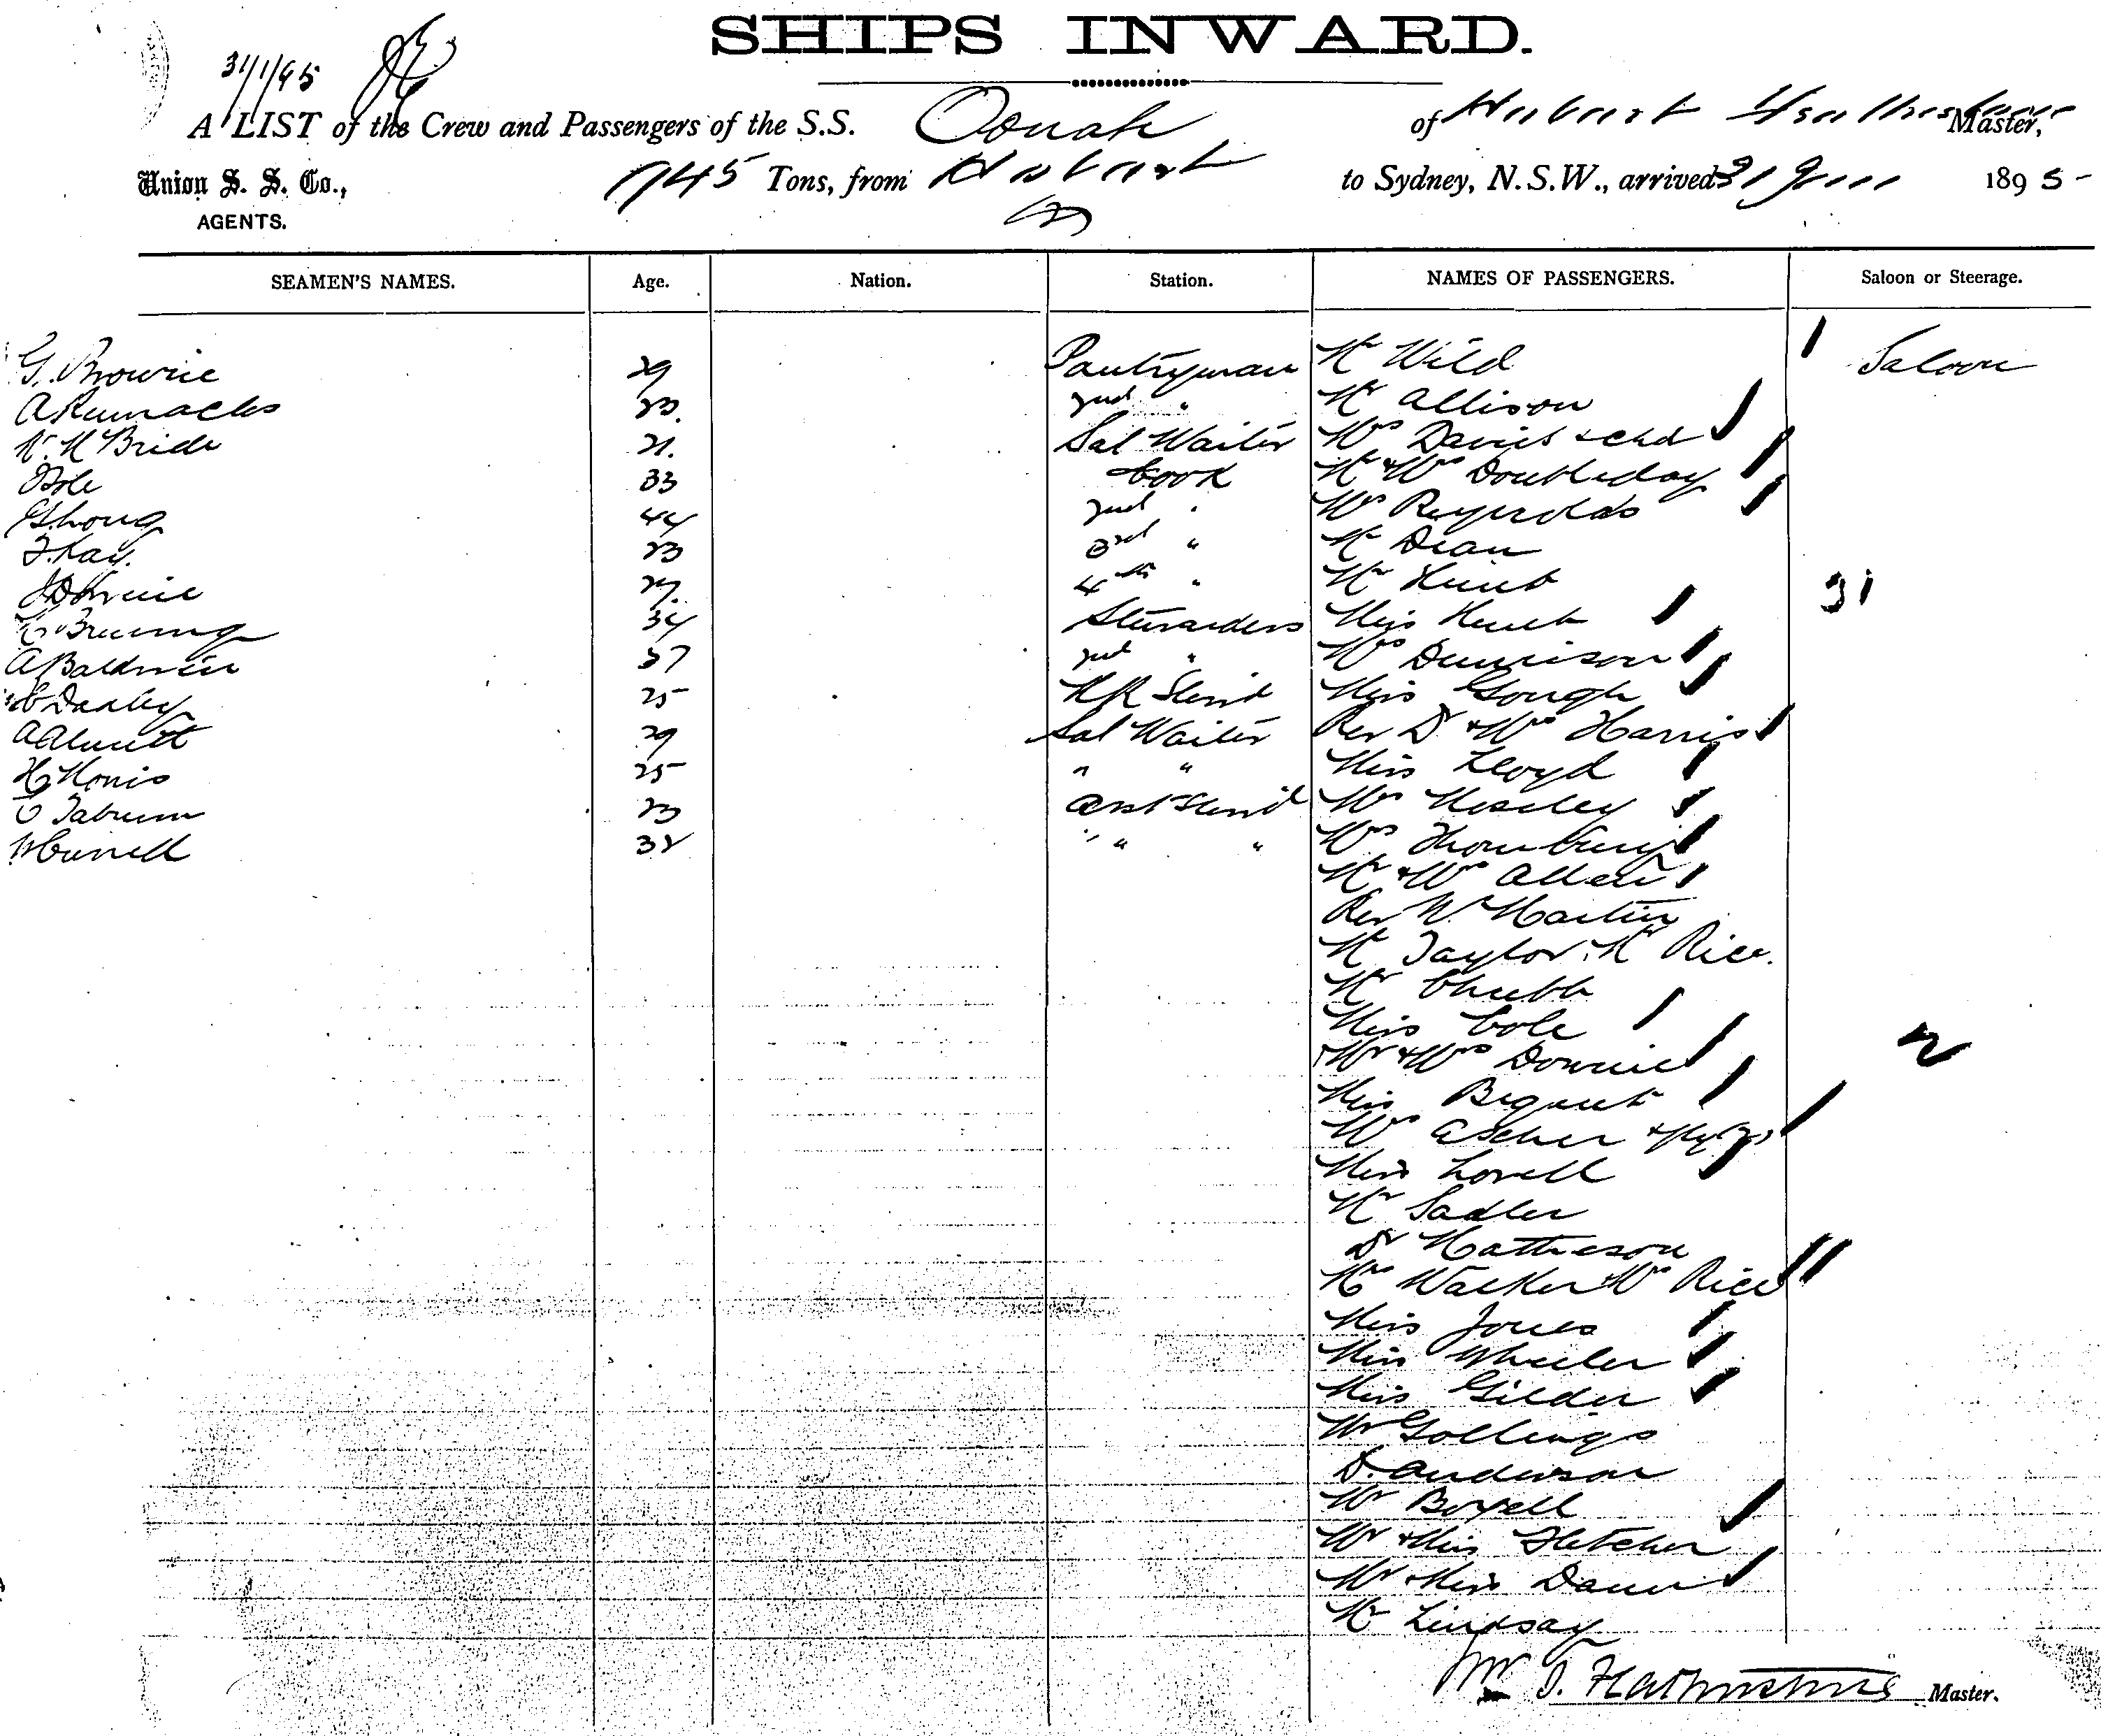 SHIPS INWARD.
31/1/95
A LIST of the Crew and Passengers of the S.S. Oonah of Hobart Master,
Union S. S. Co., 1745 Tons, from Hobart to Sydney, N.S.W., arrived 31 Jan 1895
AGENTS.
SEAMEN'S NAMES. Age. Nation. Station. NAMES OF PASSENGERS. Saloon or Steerage.
G. Brownie 29 Pantryman Mr Wild Saloon
A 23. 2nd " Mr Allison
W. McBride 21. Sal Waiter Mrs Davies & chd
Bole 33 Cook Mr & Mrs Doubleday
44 2nd " Mrs Reynolds
T. Kay. 23 3rd " Mr Dean
27. 4th " Mr Hunt
34 Stewardess Miss Hunt 31
A Baldwin 37 2nd " Mrs Dennison
25 Miss Gough
A 29 Sal Waiter Rev Dr & Mrs Harris
H Monis 25 " " Miss Lloyd
Tabrum 23 Mrs Moseley
W Cunell 38 " " " Mrs Thornbury
Mr & Mrs Allen
Rev W. Martin
Mr Taylor. Mr Rice.
Mr Chubb
Miss Cole
Mr & Mrs Downie
Miss
Mrs Ascher &
Miss Lovell
Mr Sadler
Dr Mathieson
Mrs Walker Mrs Rice
Miss Jones
Miss Wheeler
Miss Gilder
Mr Gollings
D. Anderson
Mr Boxsell
Mr & Miss Fletcher
Mr & Miss Dann
Mr Lindsay
Master.